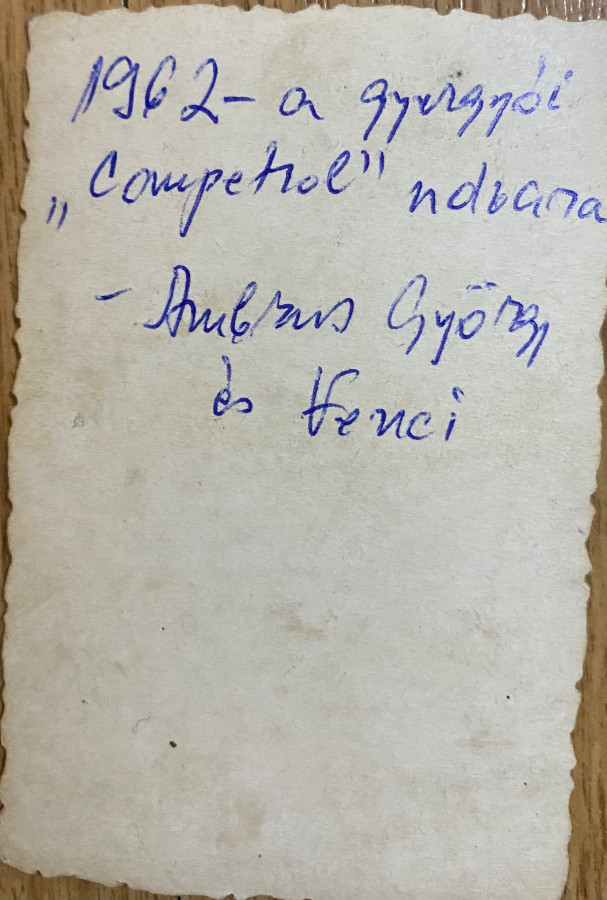 1962 - a gyergyói
„Competrol" udvara
- Ambrus György
és Fenci